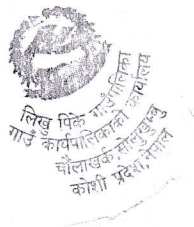 लिखु पिके गाउँपालिका
गाउँ कार्यपालिकाको कार्यालय
चौलाखर्क, सोलुखुम्बु
कोशी प्रदेश, नेपाल